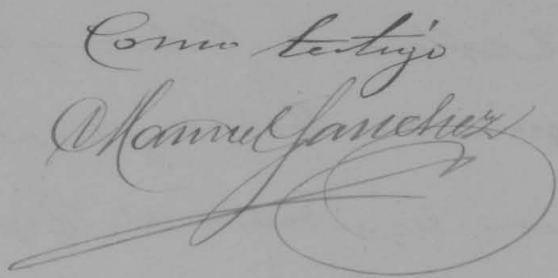 Como testigo
Manuel Sanchez